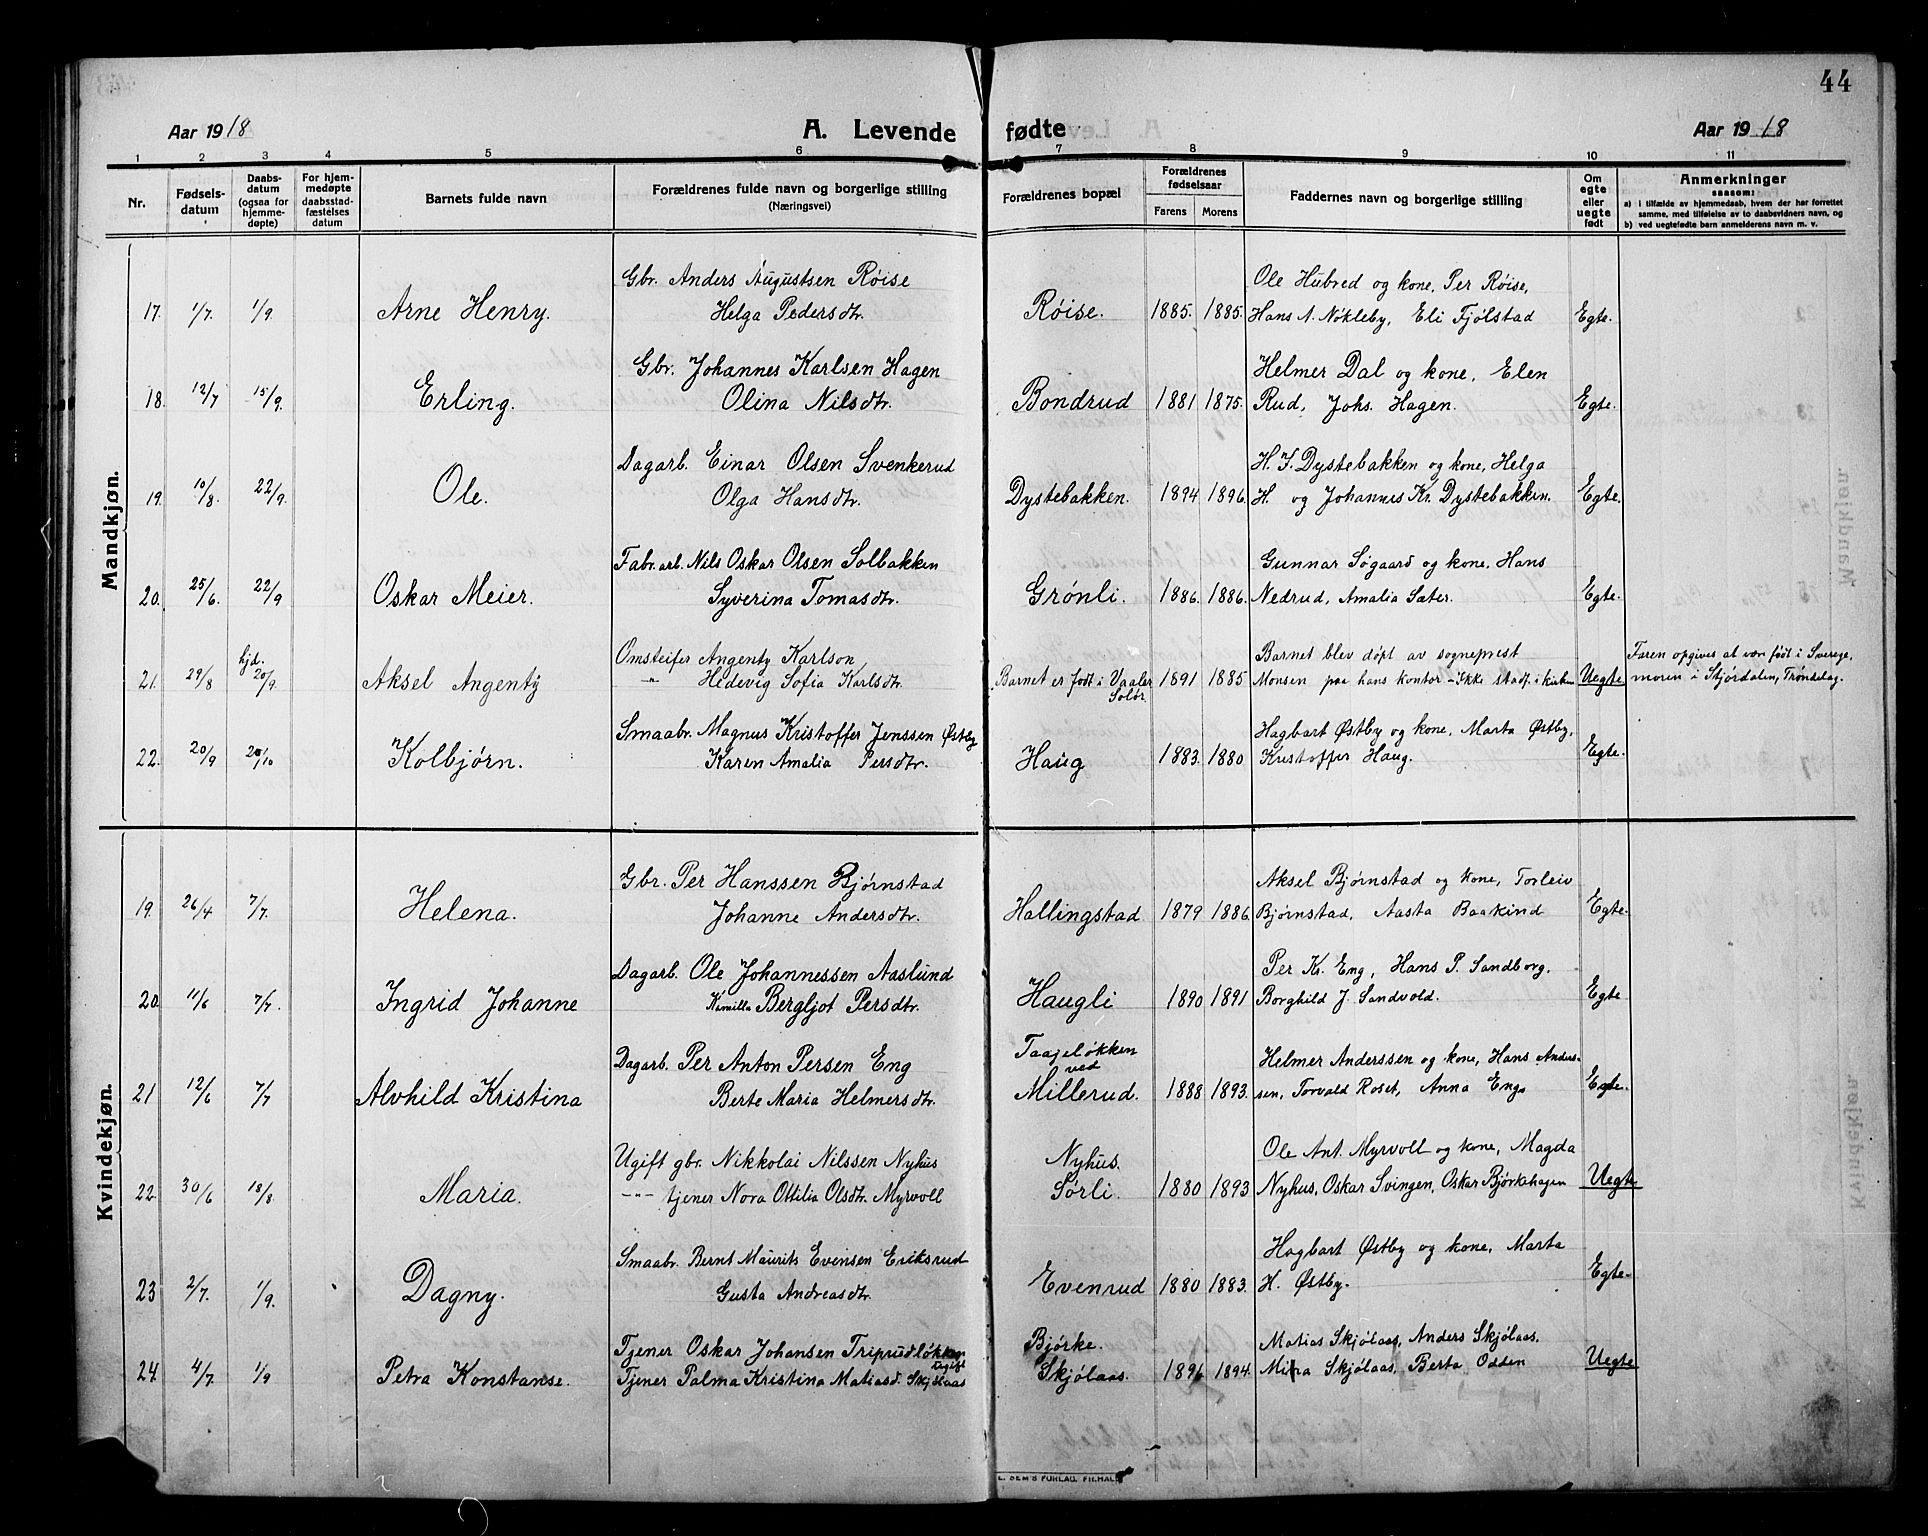 44
Aar 1918
A. Levende fødte
Aar 1918
1 2 3 4 5 6 7 8 9 10 11
Nr.
Fødsels-
datum
Daabs-
datum
(ogsaa for
hjemme-
døpte)
For hjem-
medøpte
daabsstad-
fæstelses
datum
Barnets fulde navn
Forældrenes fulde navn og borgerlige stilling
(Næringsvei)
Forældrenes bopæl
Forældrenes
fødselsaar
Farens Morens
Faddernes navn og borgerlige stilling
Om
egte
eller
uegte
født
Anmerkninger
saasom:
a) i tilfælde av hjemmedaab, hvem der har forrettet
samme, med tilføielse av to daabsvidners navn, og
b) ved uegtefødte barn anmelderens navn m. v.
Mandkjøn.
Gbr. Anders Augustsen Røise Ole Hubred og kone, Per Røise,
17. 1/7. 1/9. Arne Henry. Helga Pedersdtr. Røise. 1885. 1885. Hans A. Nøkleby, Eli Fjølstad Egte.
Gbr. Johannes Karlsen Hagen Helmer Dal og kone, Elen
18. 12/7 15/9. Erling. Olina Nilsdtr. Bondrud 1881 1875. Rud, Johs. Hagen. Egte.
Dagarb. Einar Olsen Svenkerud H. J. Dystebakken og kone, Helga
19. 10/8. 22/9. Ole. Olga Hansdtr. Dystebakken. 1894 1896. H. og Johannes Kr. Dystebakken. Egte.
Fabr.arb. Nils Oskar Olsen Solbakken Gunnar Søgaard og kone, Hans
20. 25/6. 22/9 Oskar Meier. Syverina Tomasdtr. Grønli. 1886. 1886. Nedrud, Amalia Sæter. Egte.
hjd. Omsteifer Angenty Karlson Barnet blev døpt av sogneprest Faren opgives at være født i Sverege,
21. 29/8 20/9. Aksel Angenty -"- Hedevig Sofia Karlsdtr. Barnet er født i Vaaler Solør. 1891 1885 Monsen paa hans kontor - Ikke stadf. i kirken Uegte moren i Stjørdalen, Trøndelag.
Smaabr. Magnus Kristoffer Jenssen Østby Hagbart Østby og kone, Marta Østby,
22. 20/9 20/10 Kolbjørn. Karen Amalia Persdtr. Haug 1883. 1880 Kristoffer Haug. Egte.
Kvindekjøn.
Gbr. Per Hanssen Bjørnstad Aksel Bjørnstad og kone, Torleiv
19. 26/4 7/7. Helena. Johanne Andersdtr. Hallingstad 1879 1886. Bjørnstad, Aasta Baakind Egte.
Dagarb. Ole Johannessen Aaslund Per Kr. Eng, Hans P. Sandborg,
20. 11/6 7/7. Ingrid Johanne Kamilla Bergljot Persdtr. Haugli 1890 1891 Borghild J. Sandvold. Egte
Dagarb. Per Anton Persen Eng Taajeløkken ved Helmer Anderssen og kone, Hans Anders-
21 12/6 7/7 Alvhild Kristina Berte Maria Helmersdtr. Millerud. 1888 1893. sen, Torvald Roset, Anna Eng. Egte.
Ugift gbr. Nikkolai Nilssen Nyhus Nyhus. Ole Ant. Myrvoll og kone, Magda
22. 30/6 18/8. Maria. -"- tjener Nora Ottilia Olsdtr. Myrvoll Sørli. 1880 1893 Nyhus, Oskar Svingen, Oskar Bjørkehagen Uegte
Smaabr. Bernt Maurits Evensen Eriksrud Hagbart Østby og kone, Marta
23 2/7. 1/9. Dagny. Gusta Andreasdtr. Evenrud 1880 1883. H. Østby. Egte.
Tjener Oskar Johansen Triprudløkken Bjørke. Matias Skjølaas, Anders Skjølaas.
24 4/7. 1/9 Petra Konstanse. Tjener Palma Kristina Matiasd. Skjølaas Ugift Skjølaas. 1896 1894. Mina Skjølaas, Berta Odden Uegte